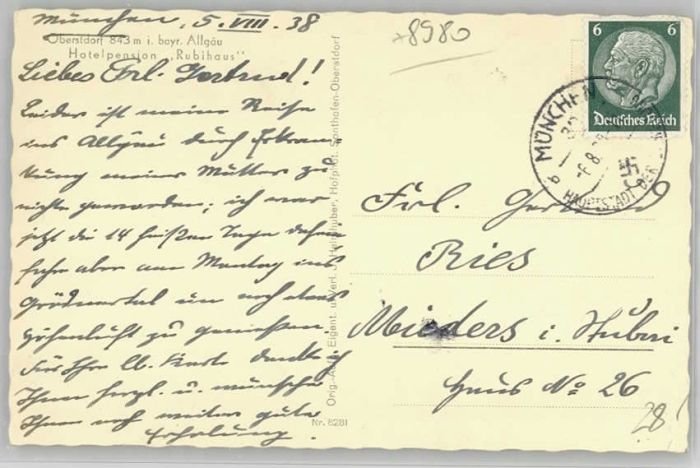 München, 5. VIII. 38
Oberstdorf 843 m i. bayr. Allgäu
Hotelpension „Rubihaus"
Liebes Frl. Gertrud!
Leider ist meine Reise
ins Allgäu durch Erkran-
kung meiner Mutter zu
nichts geworden; ich war
jetzt die 14 heißen Tage daheim
fahre aber am Montag ins
Grödnertal um noch etwas
Höhenluft zu genießen.
Für Ihre lb. Karte danke ich
Ihnen herzl. u. wünsche
Ihnen noch weiter gute
Erholung.
Orig.-Aufn. Eigent. u. Verl. J. Heimhuber, Hofphot. Sonthofen-Oberstdorf
Nr. 8281
8980
6 6
Deutsches Reich
MÜNCHEN
HAUPTSTADT DER
Frl. Gertrud
Ries
Mieders i. Stubai
Haus No 26
28